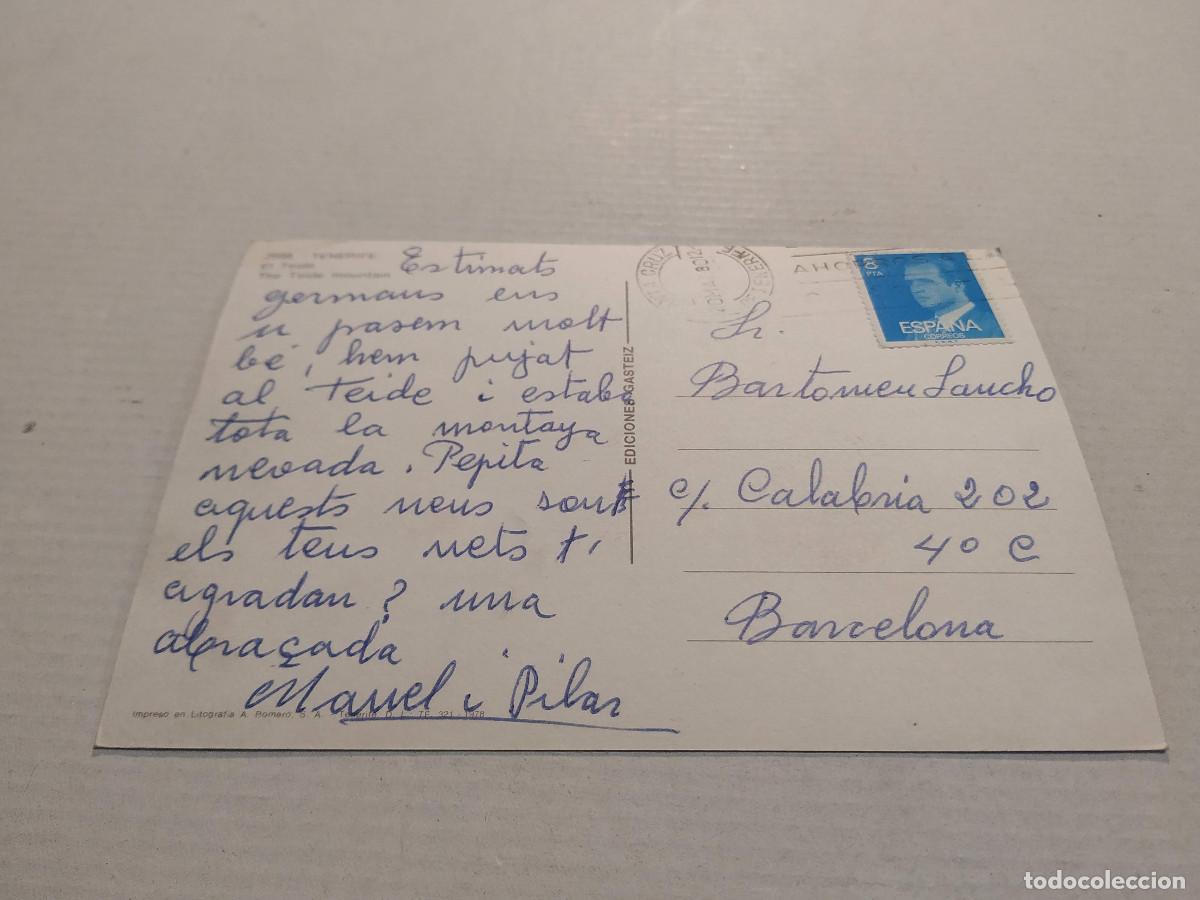 TENERIFE
El Teide
The Teide mountain
Estimats
germans ens
u pasem molt
be, hem pujat
al Teide i estaba
tota la montaya
nevada. Pepita
aquests neus sont
els teus nets t,
agradan? una
abraçada
Manel i Pilar
Impreso en Litografía A. Romero, S. A. - Tenerife D. L. TF. 321 - 1978
EDICIONES GASTEIZ
SANTA CRUZ DE TENERIFE
8 PTA
ESPAÑA
CORREOS
Sr.
Bartomeu Sancho
c/. Calabria 202
4º C
Barcelona
todocoleccion